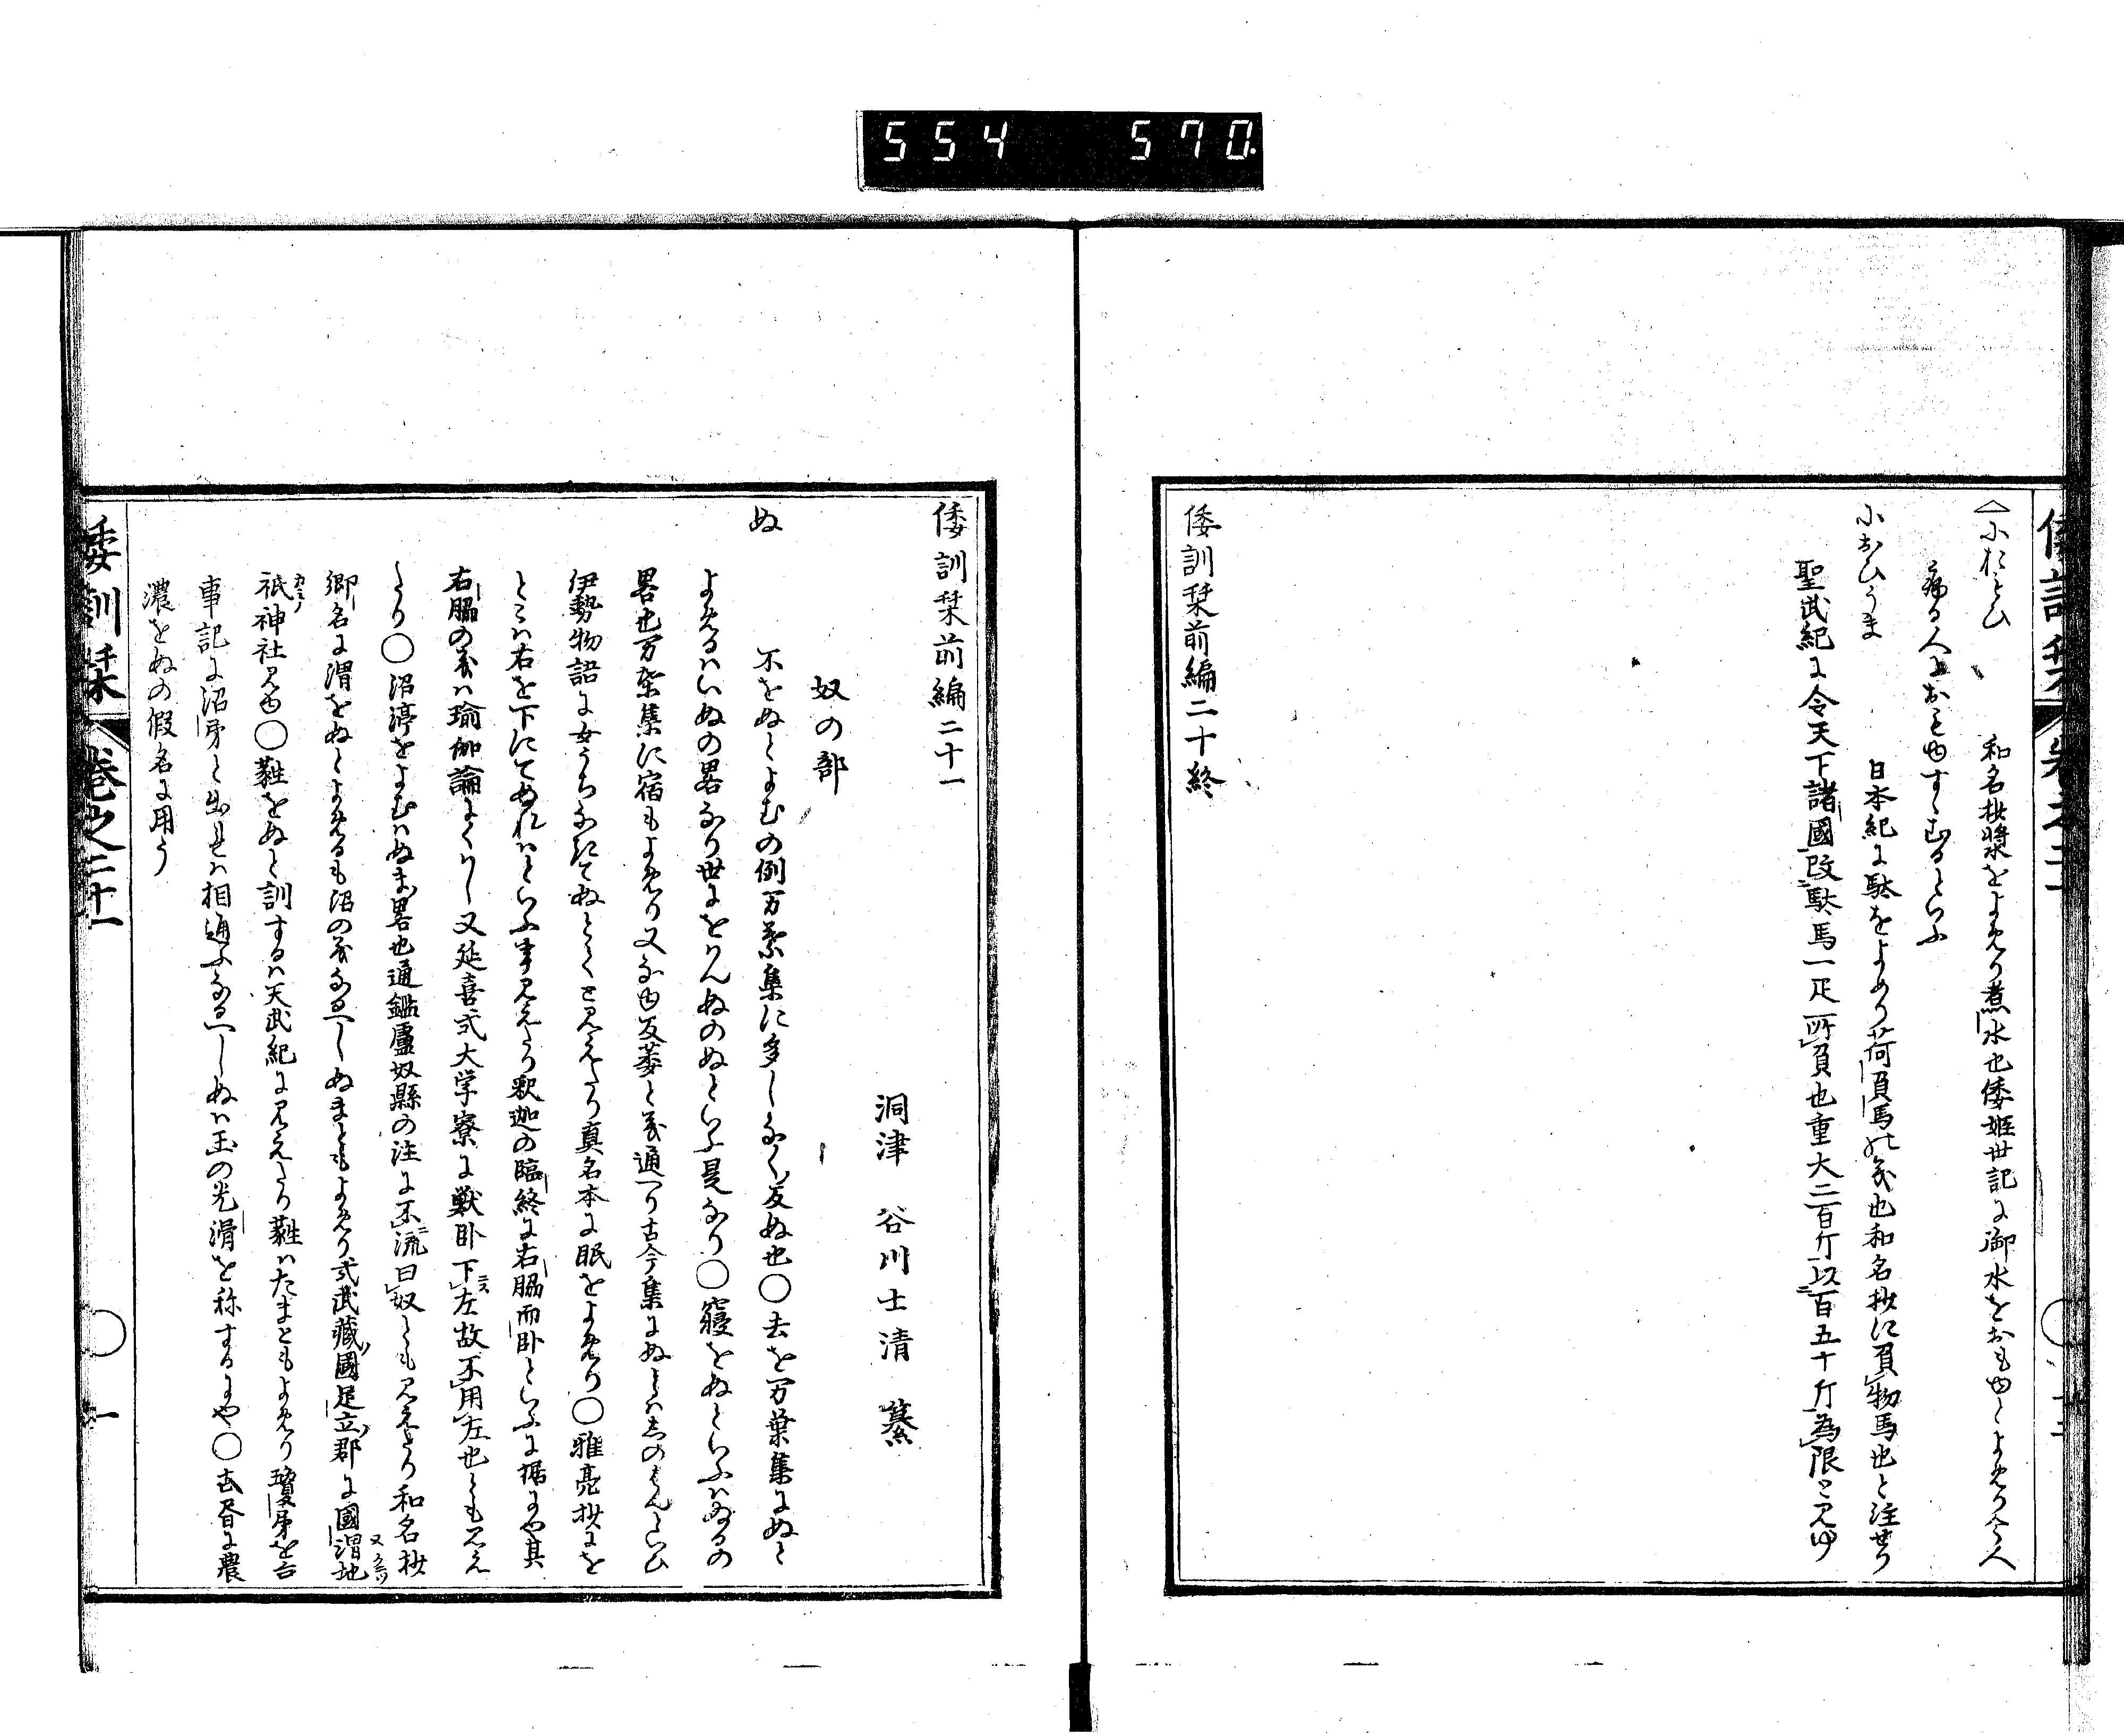 554 570
におもひ 和名抄漿をよめり煮水也倭姫世記に御水をおもゆとよめり今人
病る人におもゆすゝむるといふ
におひうま 日本紀に駄をよめり荷負馬の義也和名抄に負物馬也と注せり
聖武紀に令天下諸國改駄馬一疋所負也重大二百斤以百五十斤為限と見ゆ
倭訓栞前編二十終
倭訓栞前編二十一
洞津 谷川士清 纂
奴の部
ぬ 不をぬとよむの例万葉集に多しなく反ぬ也〇去を万葉集にぬと
よめるはいぬの畧なり世にをはんぬのぬといふ是なり〇寢をぬといふはぬるの
畧也万葉集に宿もよめり又なゆ反萎と義通へり古今集にぬとはひ
伊勢物語に女うちなきてぬとてと見えたり真名本に眠をよめり〇雅亮抄にを
とこは右を下にてぬれはといふ事見えたり釈迦の臨終に右脇而卧といふに据にや其
右脇の義は瑜伽論にくはし又延喜式大学寮に獣卧下左故不用左也とも見え
たり〇沼渟をよむはぬま畧也通鑑盧奴縣の注に不流曰奴とも見えたり和名抄
郷名に渭をぬとよめるも沼の義なるへしぬまともよめり式武藏國足立郡に國渭地
祇神社見ゆ〇蘳をぬと訓するは天武紀に見えたり蘳はたまともよめり瓊矛を古
事記に沼矛と出せは相通ふなるへしぬは玉の光滑を称するにや〇去昏に農
濃をぬの假名に用う
倭訓栞 巻之二十一 〇 一